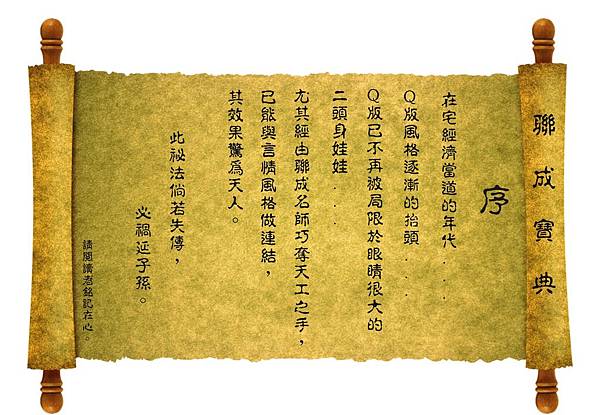 聯成寶典
序
在宅經濟當道的年代...
Q版風格逐漸的抬頭...
Q版已不再被局限於眼睛很大的
二頭身娃娃....
尤其經由聯成名師巧奪天工之手，
已能與言情風格做連結，
其效果驚為天人。
此祕法倘若失傳，
必禍延子孫。
請閱讀者銘記在心。